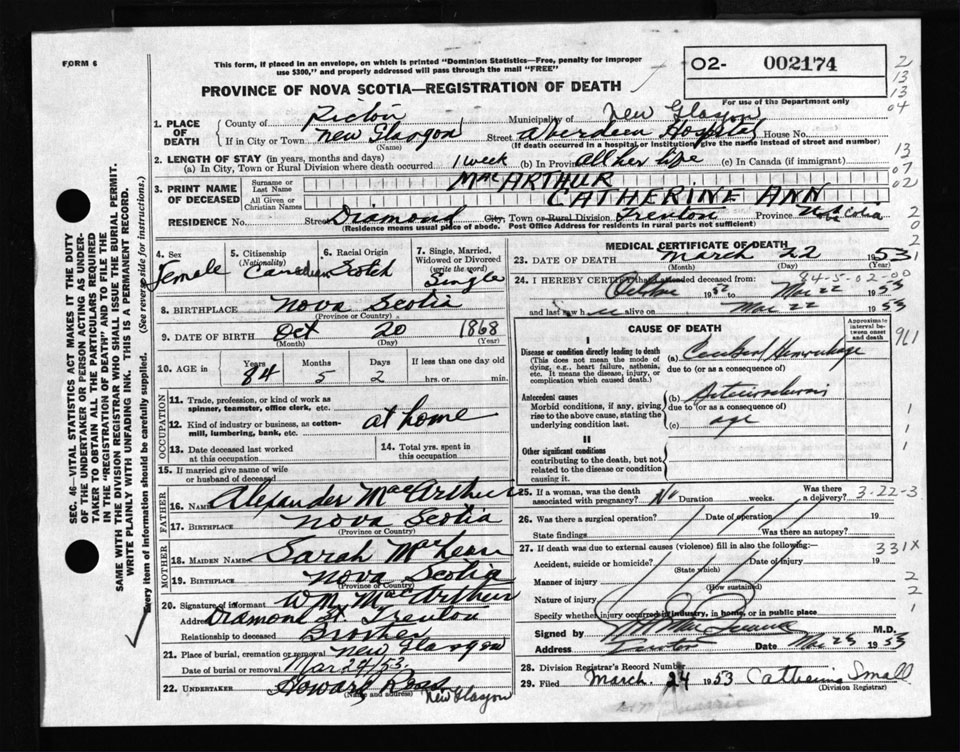 FORM 6
This form, if placed in an envelope, on which is printed "Dominion Statistics—Free, penalty for improper
use $300," and properly addressed will pass through the mail "FREE"
O2- 002174
For use of the Department only
PROVINCE OF NOVA SCOTIA—REGISTRATION OF DEATH
2
13
13
04
13
07
02
2
0
2
1. PLACE OF DEATH
County of Pictou Municipality of New Glasgow
If in City or Town New Glasgow Street Aberdeen Hospital House No.
(Name) (If death occurred in a hospital or Institution, give the name instead of street and number)
2. LENGTH OF STAY (in years, months and days)
(a) In City, Town or Rural Division where death occurred 1 week (b) In Province all her life (c) In Canada (if immigrant)
3. PRINT NAME OF DECEASED
Surname or Last Name MacARTHUR
All Given or Christian Names CATHERINE ANN
RESIDENCE No. Street Diamond City, Town or Rural Division Trenton Province N Scotia
(Residence means usual place of abode. Post Office Address for residents in rural parts not sufficient)
4. Sex
Female
5. Citizenship (Nationality)
Canadian
6. Racial Origin
Scotch
7. Single, Married, Widowed or Divorced (write the word)
Single
8. BIRTHPLACE Nova Scotia
(Province or Country)
9. DATE OF BIRTH Oct 20 1868
(Month) (Day) (Year)
10. AGE in Years Months Days If less than one day
84 5 2 hrs. or min.
OCCUPATION
11. Trade, profession, or kind of work as spinner, teamster, office clerk, etc.
at home
12. Kind of industry or business, as cotton-mill, lumbering, bank, etc.
13. Date deceased last worked at this occupation
14. Total yrs. spent in this occupation
15. If married give name of wife or husband of deceased
FATHER
16. NAME Alexander MacArthur
17. BIRTHPLACE Nova Scotia
(Province or Country)
MOTHER
18. MAIDEN NAME Sarah MacLean
19. BIRTHPLACE Nova Scotia
(Province or Country)
20. Signature of informant Wm MacArthur
Address Diamond St Trenton
Relationship to deceased Brother
21. Place of burial, cremation or removal New Glasgow
Date of burial or removal Mar 24/53
22. UNDERTAKER Howard Ross
(Name and address) New Glasgow
MEDICAL CERTIFICATE OF DEATH
23. DATE OF DEATH March 22 1953
(Month) (Day) (Year)
84-5-02-00
24. I HEREBY CERTIFY that I attended deceased from:
October 1952 to Mar 22 1953
and last saw h er alive on Mar 22 1953
CAUSE OF DEATH
Approximate interval between onset and death
961
I
Disease or condition directly leading to death (a) Cerebral Hemorrhage
(This does not mean the mode of dying, e.g., heart failure, asthenia, etc. It means the disease, injury, or complication which caused death.)
due to (or as a consequence of)
Antecedent causes (b) Arteriosclerosis
Morbid conditions, if any, giving rise to the above cause, stating the underlying condition last.
due to (or as a consequence of)
(c) age
1
1
1
II
Other significant conditions
contributing to the death, but not related to the disease or condition causing it.
25. If a woman, was the death associated with pregnancy? No Duration weeks. Was there a delivery?
3-22-3
26. Was there a surgical operation? Date of operation 19
State findings Was there an autopsy?
27. If death was due to external causes (violence) fill in also the following:
331X
Accident, suicide or homicide? Date of injury 19
(State which)
Manner of injury
(How sustained)
2
Nature of injury
2
Specify whether injury occurred in industry, in home, or in public place
1
Signed by M.D.
Address Date Mar 23 1953
28. Division Registrar's Record Number
29. Filed March 24 1953 Catherine Small
(Division Registrar)
SEC. 46—VITAL STATISTICS ACT MAKES IT THE DUTY
OF THE UNDERTAKER OR PERSON ACTING AS UNDER-
TAKER TO OBTAIN ALL THE PARTICULARS REQUIRED
IN THE "REGISTRATION OF DEATH" AND TO FILE THE
SAME WITH THE DIVISION REGISTRAR WHO SHALL ISSUE THE BURIAL PERMIT.
WRITE PLAINLY WITH UNFADING INK. THIS IS A PERMANENT RECORD.
Every item of information should be carefully supplied. (See reverse side for instructions.)